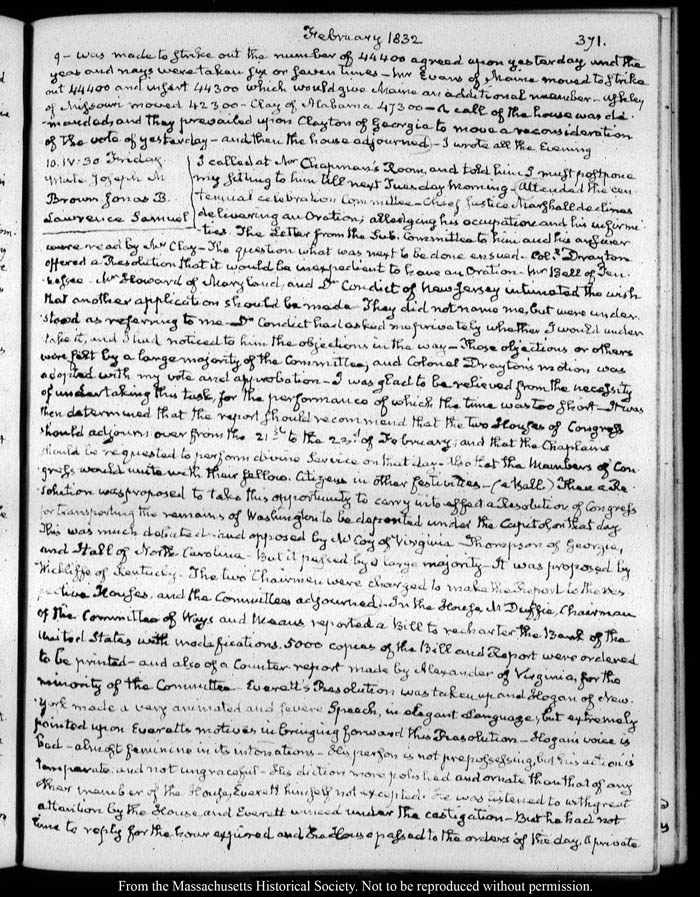 February 1832 371.
9 - was made to strike out the number of 44400 agreed upon yesterday and the
yeas and nays were taken six or seven times - Mr Evans of Maine moved to strike
out 44400 and insert 44300 which would give Maine an additional member - Ashley
of Missouri moved 42300 - Clay of Alabama 47300 - A call of the house was de-
manded, and they prevailed upon Clayton of Georgia to move a reconsideration
of the vote of yesterday - and then the house adjourned - I wrote all the Evening
10. IV:30 Friday.
White Joseph M
Brown Jonas B.
Lawrence Samuel
I called at Mr Chapman's Room, and told him I must postpone
my sitting to him till next Tuesday Morning - Attended the cen-
tennial celebration Committee - Chief Justice Marshall declines
delivering an Oration; alledging his occupations and his infirmi-
ties. The Letter from the Sub-Committee to him and his answer
were read by Mr Clay - The question what was next to be done ensued - Coll. Drayton
offered a Resolution that it would be inexpedient to have an Oration - Mr Bell of Ten-
nessee - Mr Howard of Maryland, and Dr Condict of New Jersey intimated the wish
that another application should be made - They did not name me, but were under-
stood as referring to me - Dr Condict had asked me privately whether I would under-
take it, and I had noticed to him the objections in the way - Those objections or others
were felt by a large majority of the Committee, and Colonel Drayton's motion was
adopted with my vote and approbation - I was glad to be relieved from the necessity
of undertaking this task, for the performance of which the time was too short - It was
then determined that the report should recommend that the two Houses of Congress
should adjourn over from the 21st to the 23d of February; and that the Chaplains
should be requested to perform divine Service on that day - Also that the Members of Con-
gress would unite with their fellow Citizens in other festivities - (a Ball) Then a Re-
solution was proposed to take this opportunity to carry into effect a Resolution of Congress
for transporting the remains of Washington to be deposited under the Capitol on that day
This was much debated and opposed by McCoy of Virginia - Thompson of Georgia,
and Hall of North Carolina - But it passed by a large majority - It was proposed by
Wickliffe of Kentucky - The two Chairmen were charged to make the Report to the res-
pective Houses, and the Committees adjourned. - In the House, McDuffie, Chairman
of the Committee of Ways and Means, reported a Bill to recharter the Bank of the
United States with modifications. 5000 copies of the Bill and Report were ordered
to be printed - and also of a Counter report made by Alexander of Virginia, for the
minority of the Committee - Everett's Resolution was taken up and Hogan of New-
York made a very animated and severe Speech, in elegant Language, but extremely
pointed upon Everett's motives in bringing forward this Resolution - Hogan's voice is
bad - almost feminine in its intonations - His person is not prepossessing, but his action is
temperate and not ungraceful - His diction more polished and ornate than that of any
other member of the House, Everett himself not excepted. He was listened to with great
attention by the House, and Everett winced under the castigation - But he had not
time to reply for the hour expired and the House passed to the orders of the day. A private
From the Massachusetts Historical Society. Not to be reproduced without permission.